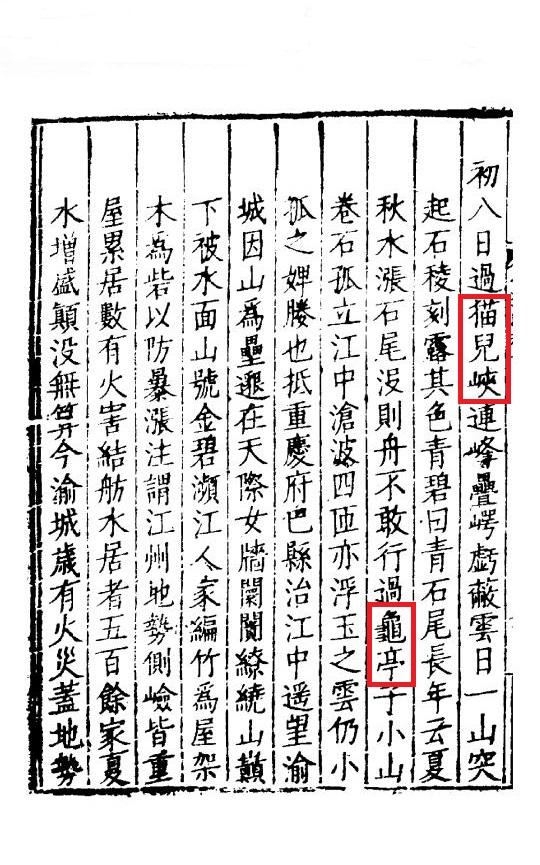 初八日過猫兒峽連峰疊崿虧蔽雲日一山突
起石稜刻露其色青碧曰青石尾長年云夏
秋水漲石尾没則舟不敢行過龜亭子小山
卷石孤立江中滄波四匝亦浮玉之雲仍小
孤之婢媵也抵重慶府巴縣治江中遥望渝
城因山為壘邈在天際女牆闤闠繚繞山巔
下被水面山號金碧瀕江人家編竹為屋架
木為砦以防暴漲注謂江州地勢側嶮皆重
屋累居數有火害結舫水居者五百餘家夏
水增盛顛没無筭今渝城歲有火災蓋地勢